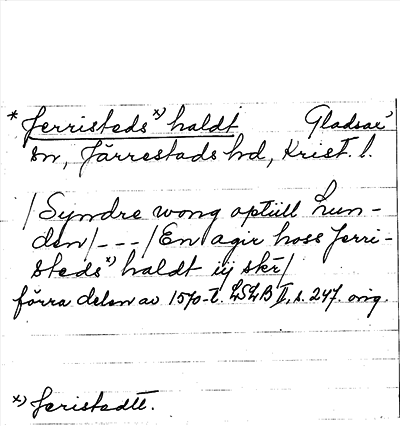 * Jerristeds x) haldt Gladsax
sn, Järrestads hd, Krist. l.
/Syndre wong optiill lun-
den/---/En agir hoss Jerri-
steds x) haldt iij skr/
förra delen av 1570-t. LSLB II, s. 247. orig.
x) Jeristedtt.